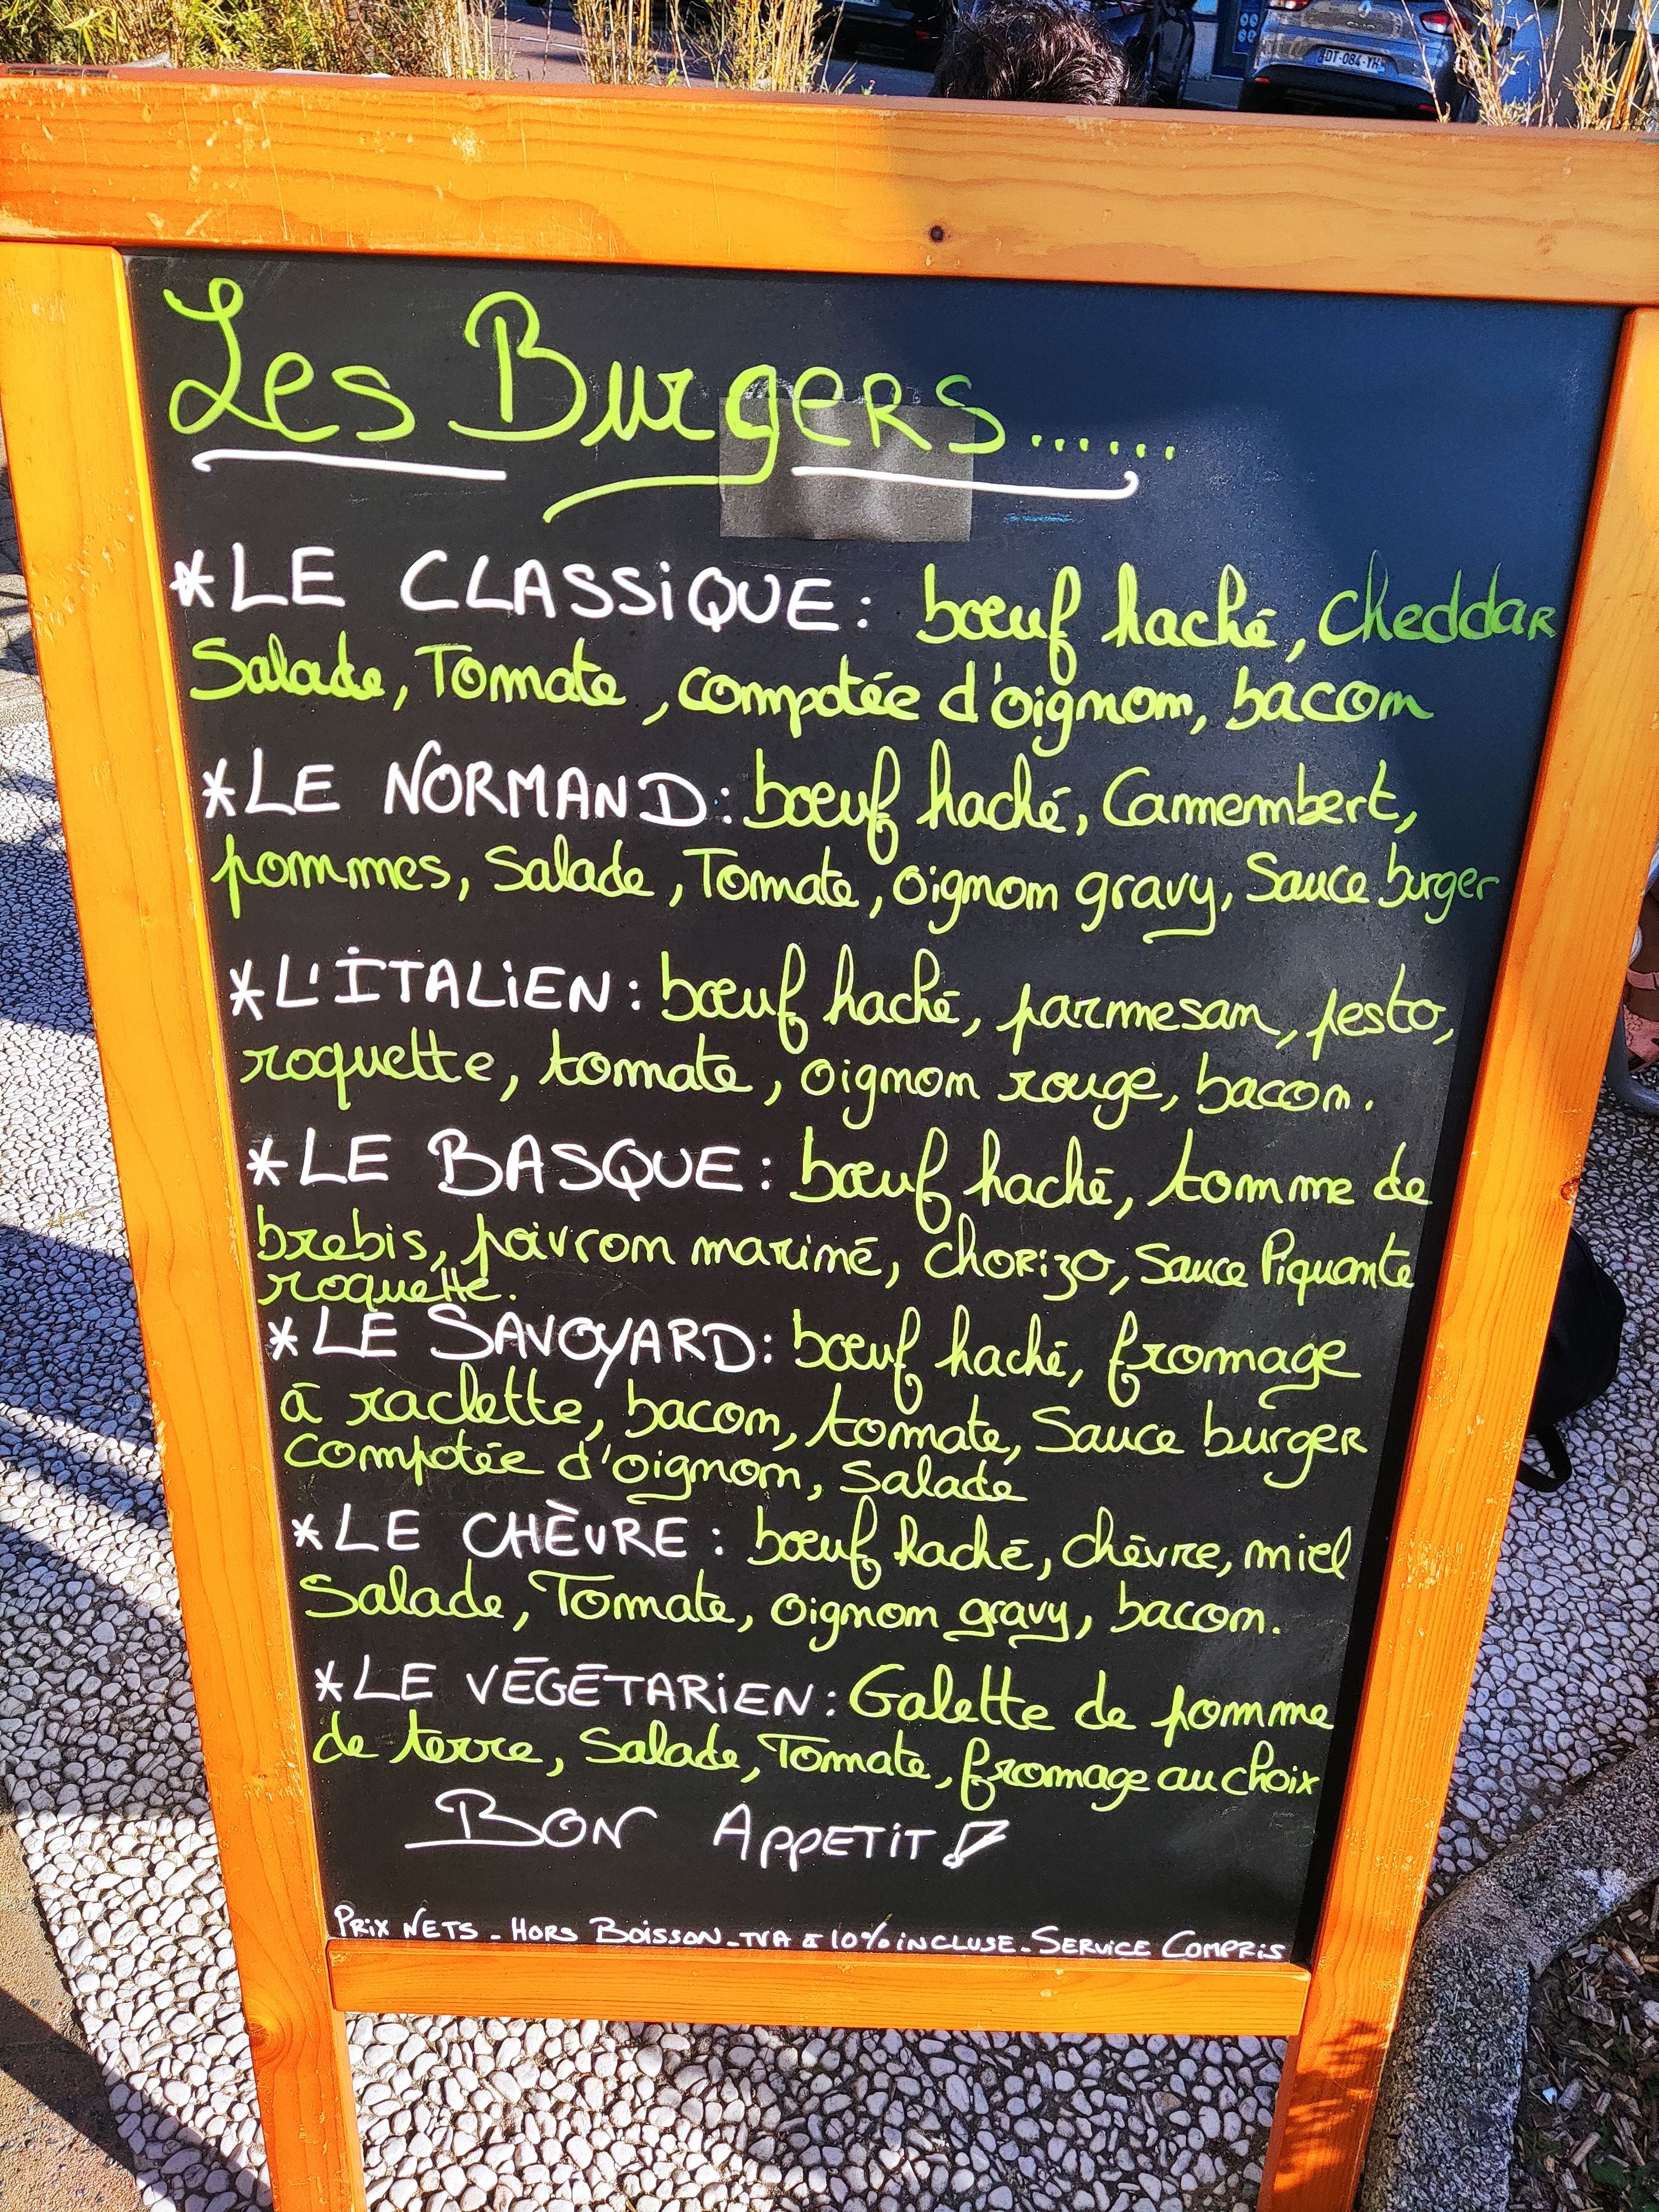 DT-084-YH
Les Burgers......
*LE CLASSiQUE : bœuf haché, cheddar
Salade, Tomate, compotée d'oignon, bacon
*LE NORMAND : bœuf haché, Camembert,
pommes, Salade, Tomate, oignon gravy, Sauce burger
*L'ITALiEN : bœuf haché, parmesan, pesto,
roquette, tomate, oignon rouge, bacon.
*LE BASQUE : bœuf haché, tomme de
brebis, poivron mariné, chorizo, Sauce Piquante
roquette.
*LE SAVOYARD : bœuf haché, fromage
à raclette, bacon, tomate, Sauce burger
compotée d'oignon, Salade
*LE CHÈVRE : bœuf haché, chèvre, miel
Salade, Tomate, oignon gravy, bacon.
*LE VÉGÉTARiEN : Galette de pomme
de terre, Salade, Tomate, fromage au choix
BON APPETiT !
PRiX NETS - HORS BOiSSON - TVA à 10% iNCLUSE - SERViCE COMPRiS